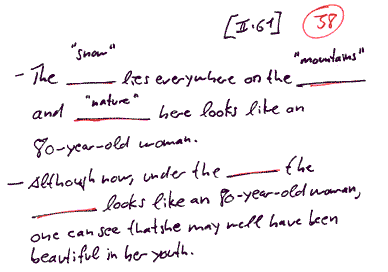 [II.61] 38
"snow" "mountains"
- The ____ lies everywhere on the ____
and "nature" here looks like an
80-year-old woman.
- Although now, under the ____ the
____ looks like an 80-year-old woman,
one can see that she may well have been
beautiful in her youth.